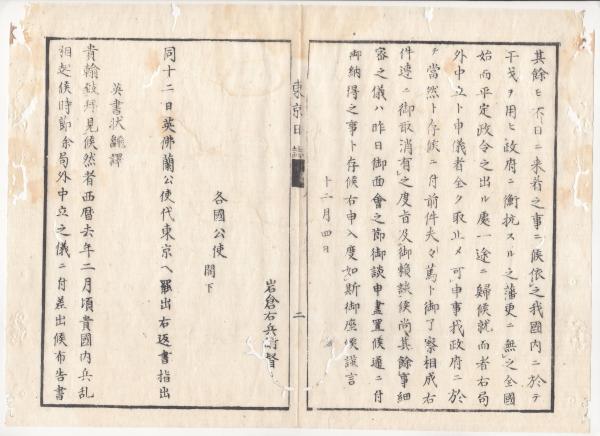 其餘モ不日ニ来着之事ニ候依之我國内ニ於テ
干戈ヲ用ヒ政府ニ衡抗スル之藩更ニ無之全國
始而平定政令之出ル處一途ニ歸候就而者右局
外中立ト申儀者全ク取止メ可申事我政府ニ於
テ當然ト存候ニ付前件夫々篤ト御了察相成右
件速ニ御取消有之度旨及御賴談候尚其餘事細
密之儀ハ昨日御面會之節御談申盡置候通ニ付
御納得之事ト存候右申入度如斯御座候謹言
十二月四日
岩倉右兵衛督
各國公使
閣下
東京日誌
二
同十二日英佛蘭公使代東京ヘ罷出右返書指出
英書状飜譯
貴翰致拜見候然者西曆去年二月頃貴國内兵乱
相起候時節余局外中立之儀ニ付差出候布告書